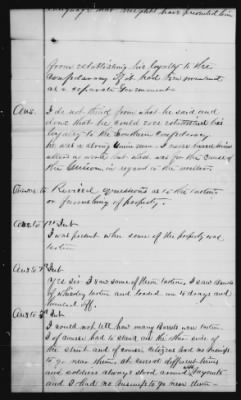 language that might have prevented him
from establishing his loyalty to the
Confederacy if it had been maintained
as a separate Government
Ans. I do not think from what he said and
done that he could ever establish his
loyalty to the Southern Confederacy
he was a strong Union man I never heard him
utter a word but what was for the cause of
the Union in regard to the matter
Revised questions as to the
or furnishing of property.
Ans to 1st Int
I was present when some of the property was
taken
Ans to 2d Int
Yes sir I saw some of them taken, I saw barrels
of whiskey taken and loaded in to drays and
hauled off.
Ans to 3d Int
I could not tell how many barrels were taken
I of course had to stand on the other side of
the street and of course citizens had no business
to go near them, at several different times
and soldiers always stood around with bayonets
and I had no business to go near them